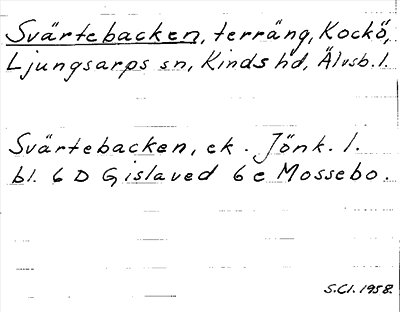 Svärtebacken, terräng, Kockö,
Ljungsarps sn, Kinds hd, Älvsb. l.
Svärtebacken, ek. Jönk. l.
bl. 6 D Gislaved 6 e Mossebo.
S.Cl. 1958.